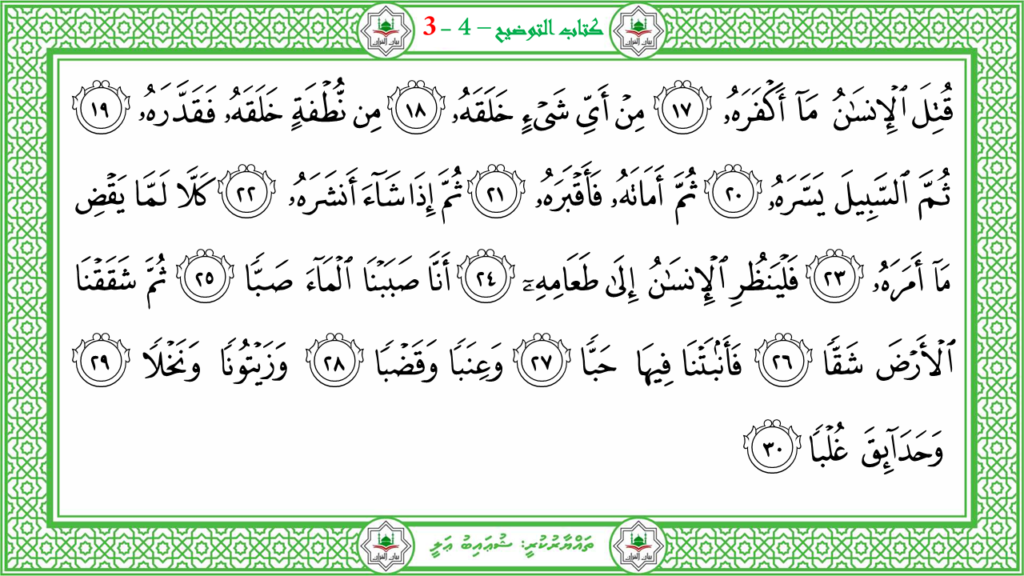 كتاب التوضيح – 4 - 3
قُتِلَ ٱلْإِنسَـٰنُ مَآ أَكْفَرَهُۥ ١٧ مِنْ أَىِّ شَىْءٍ خَلَقَهُۥ ١٨ مِن نُّطْفَةٍ خَلَقَهُۥ فَقَدَّرَهُۥ ١٩
ثُمَّ ٱلسَّبِيلَ يَسَّرَهُۥ ٢٠ ثُمَّ أَمَاتَهُۥ فَأَقْبَرَهُۥ ٢١ ثُمَّ إِذَا شَآءَ أَنشَرَهُۥ ٢٢ كَلَّا لَمَّا يَقْضِ
مَآ أَمَرَهُۥ ٢٣ فَلْيَنظُرِ ٱلْإِنسَـٰنُ إِلَىٰ طَعَامِهِۦٓ ٢٤ أَنَّا صَبَبْنَا ٱلْمَآءَ صَبًّا ٢٥ ثُمَّ شَقَقْنَا
ٱلْأَرْضَ شَقًّا ٢٦ فَأَنۢبَتْنَا فِيهَا حَبًّا ٢٧ وَعِنَبًا وَقَضْبًا ٢٨ وَزَيْتُونًا وَنَخْلًا ٢٩
وَحَدَآئِقَ غُلْبًا ٣٠
ތައްޔާރުކުރީ: ޝުޢައިބު ޢަލީ